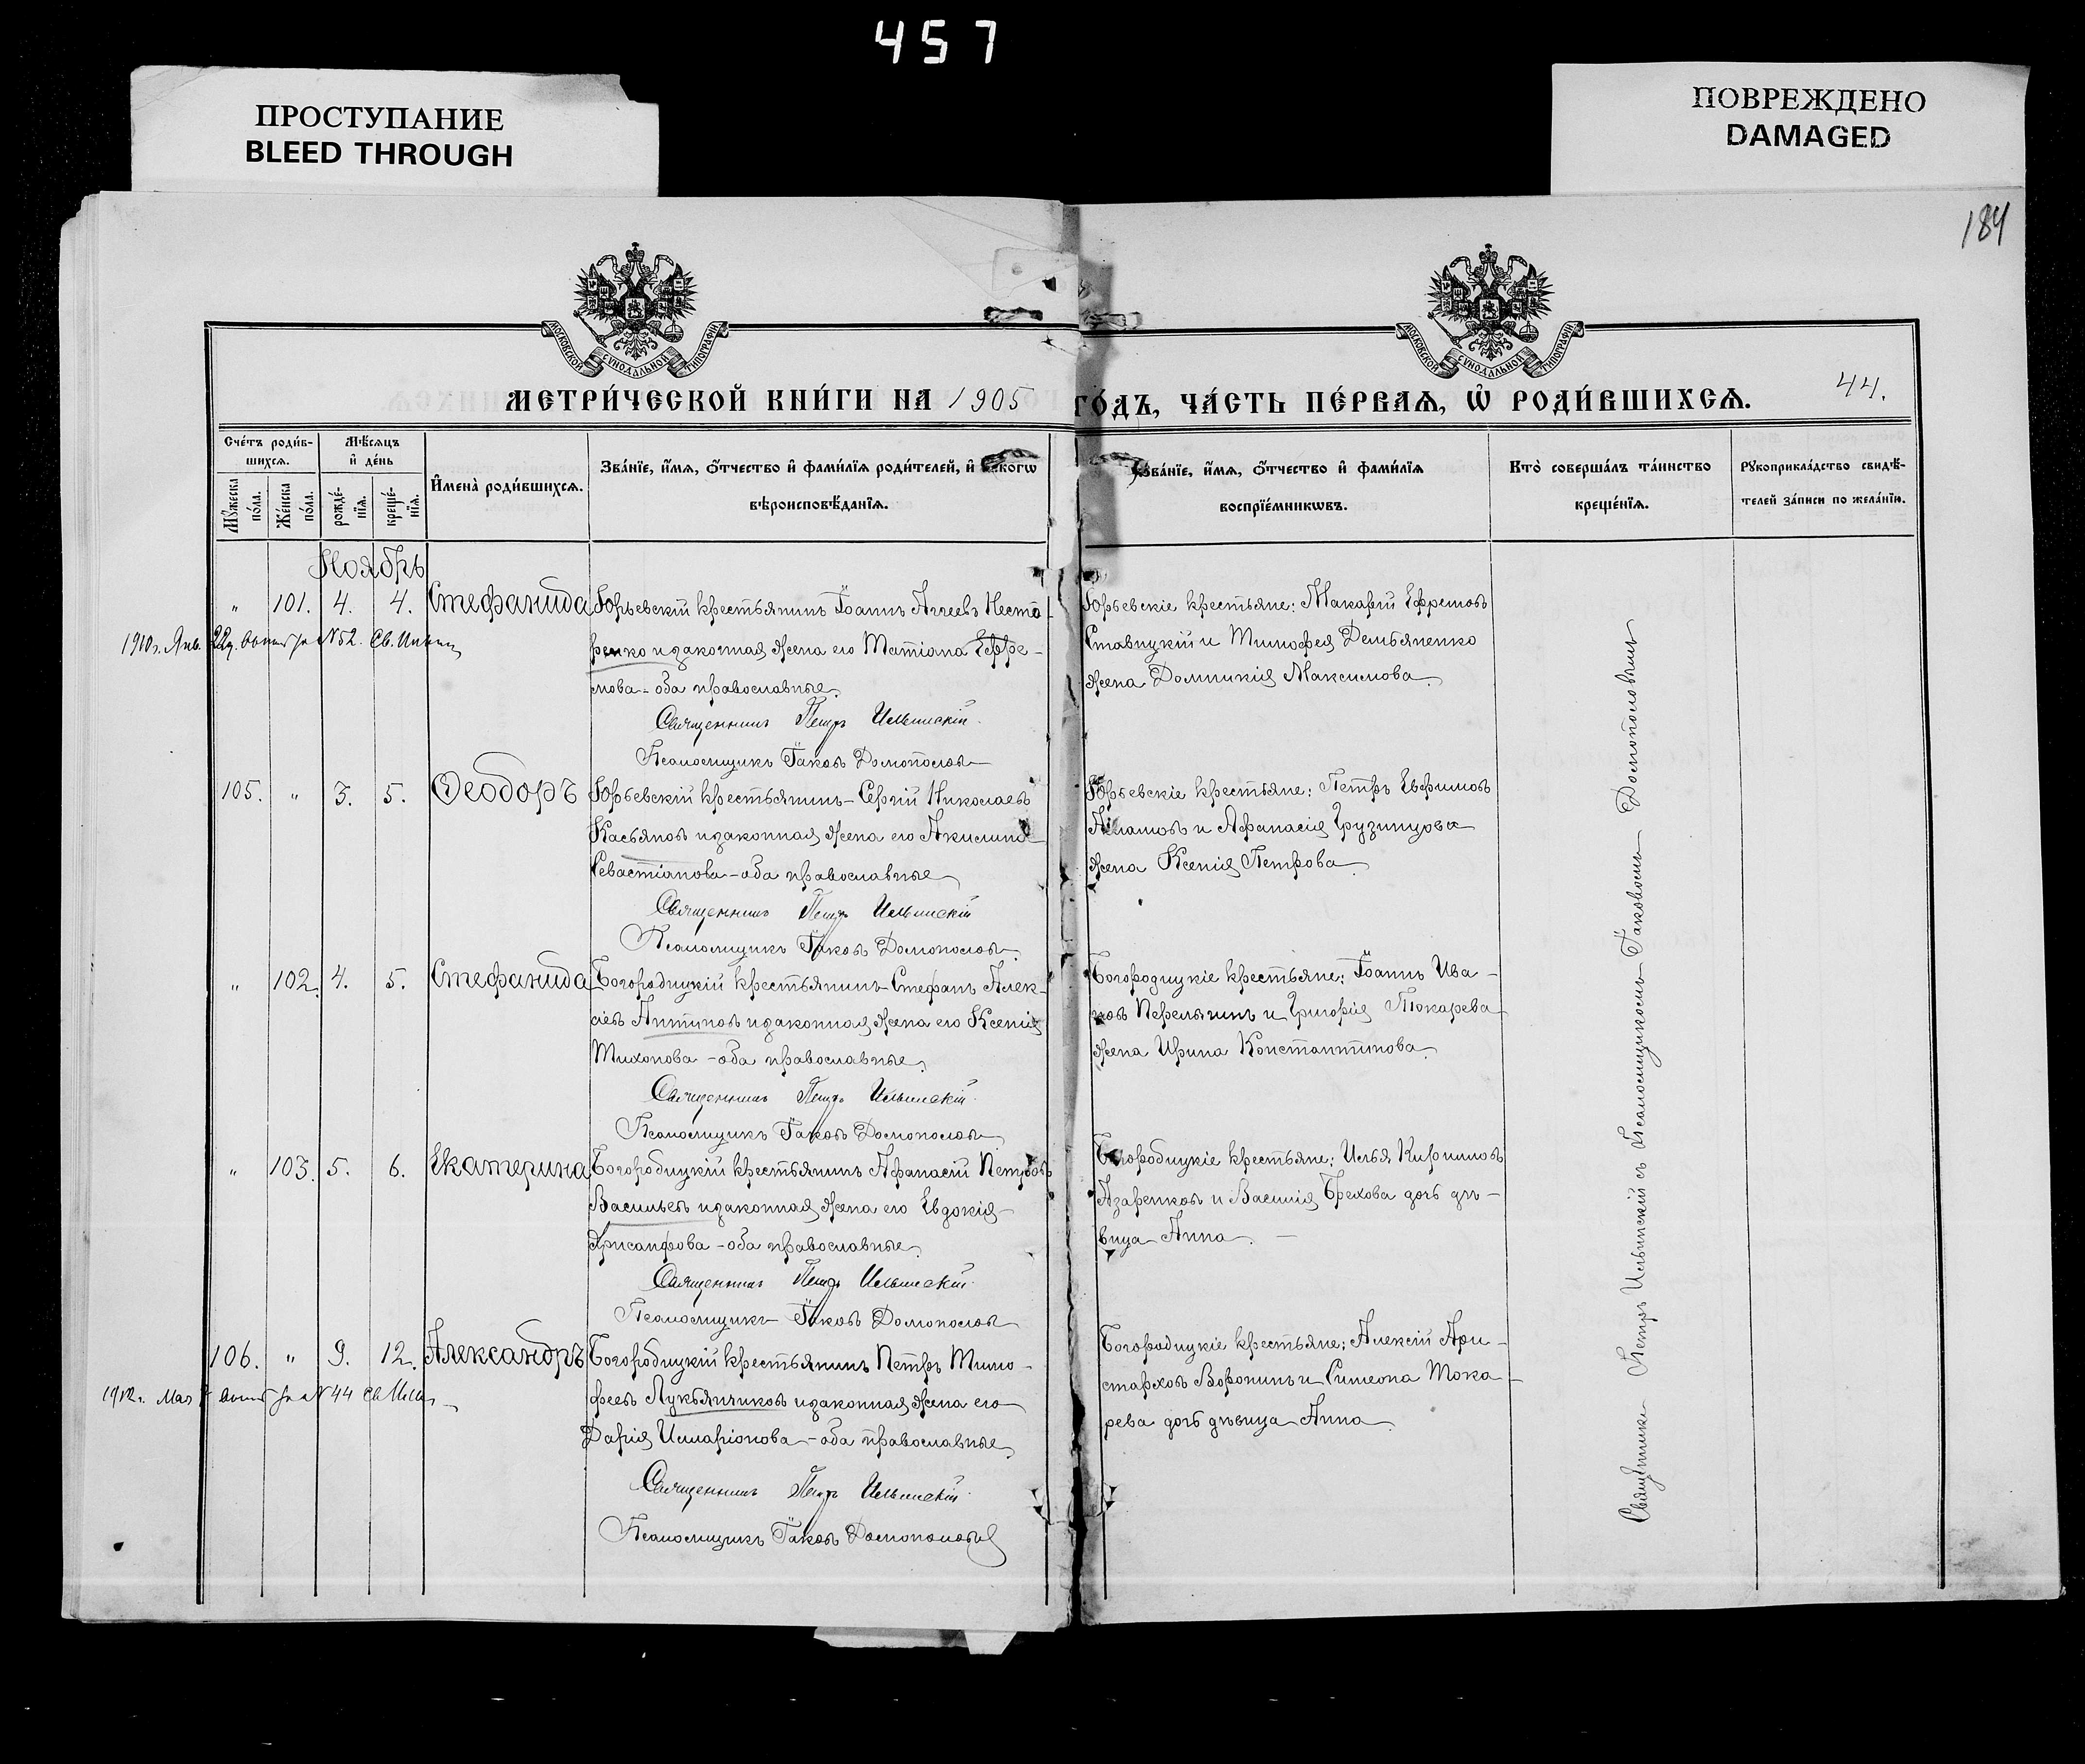 457
ПРОСТУПАНИЕ
BLEED THROUGH
ПОВРЕЖДЕНО
DAMAGED
184
МОСКОВСКОЙ СѴНОДАЛЬНОЙ ТИПОГРАФІИ
МОСКОВСКОЙ СѴНОДАЛЬНОЙ ТИПОГРАФІИ
МЕТРИ́ЧЕСКОЙ КНИ́ГИ НА 1905 ГО́ДЪ, ЧА́СТЬ ПЕ́РВАѦ, Ѡ҆ РОДИ́ВШИХСѦ.
44.
Сче́тъ роди́в-
шихсѧ.
Мꙋ́жеска по́ла.
Же́нска по́ла.
Мѣ́сѧцъ
и҆ де́нь
рожде́-
нїѧ.
креще́-
нїѧ.
И҆мена̀ роди́вшихсѧ.
Зва́нїе, и҆́мѧ, ѻ҆́тчество и҆ фами́лїѧ роди́телей, и҆ како́гѡ
вѣроисповѣ́данїѧ.
Зва́нїе, и҆́мѧ, ѻ҆́тчество и҆ фами́лїѧ
воспрїе́мникѡвъ.
Кто̀ соверша́лъ та́инство
креще́нїѧ.
Рꙋкоприкла́дство свидѣ́-
телей за́писи по жела́нїю.
Ноябрь
" 101. 4. 4. Стефанида
Юрьевскій крестьянинъ Іоаннъ Несто-
ренко и законная жена его Татіана Ефре-
мова - оба православные.
Священникъ Петръ Ильинскій
Псаломщикъ Іаковъ
Юрьевскіе крестьяне: Макарій Ефремовъ
Ставицкій и Тимофея Демьяненко
жена Домникія Максимова.
1910 г. Янв. 22 за №52.
105. " 3. 5. Ѳеодоръ
Юрьевскій крестьянинъ - Сергій Николаевъ
Касьяновъ и законная жена его Акилина
Севастіанова - оба православные
Священникъ Петръ Ильинскій
Псаломщикъ Іаковъ
Юрьевскіе крестьяне: Петръ Ефимовъ
и Афанасія Грузинцова
жена Ксенія Петрова.
" 102. 4. 5. Стефанида
Богородицкій крестьянинъ Стефанъ Алек-
сѣевъ Антиповъ и законная жена его Ксенія
Тихонова - оба православные.
Священникъ Петръ Ильинскій
Псаломщикъ Іаковъ
Богородицкіе крестьяне: Іоаннъ Ива-
новъ и Григорія Токарева
жена Ирина Константинова.
" 103. 5. 6. Екатерина
Богородицкій крестьянинъ Афанасій Петровъ
Васильевъ и законная жена его Евдокія
Хрисанфова - оба православные.
Священникъ Петръ Ильинскій
Псаломщикъ Іаковъ
Богородицкіе крестьяне: Илья Кирилловъ
Азаренковъ и Василія Брехова дочь дѣ-
вица Анна. -
106. " 9. 12. Александръ
Богородицкій крестьянинъ Петръ Тимо-
феевъ Лукьянчиковъ и законная жена его
Дарія Иларіонова - оба православные.
Священникъ Петръ Ильинскій
Псаломщикъ Іаковъ
Богородицкіе крестьяне: Алексій Ари-
старховъ Воронинъ и Симеона Тока-
рева дочь дѣвица Анна
1912 г. Мая за №44
Священникъ Петръ Ильинскій съ Псаломщикомъ Іаковомъ